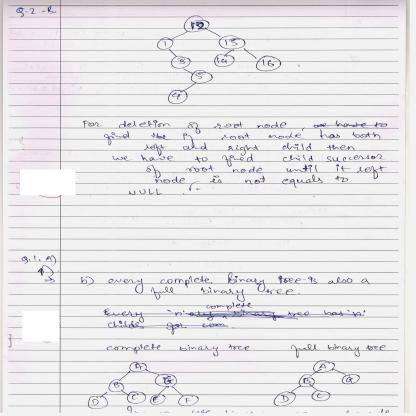 Q-2-R
12
1 15
3 1a 16
5
4
For deletion of root node, we have to
find the if root node has both
left and right child then
we have to find child successor
of root node until it left
node is not equals to
NULL.
Q.1. A)
b) every complete binary tree is also a
full binary tree.
complete
Every binary tree has 'n'
childs
complete binary tree full binary tree
A A
B B
D C E F D C